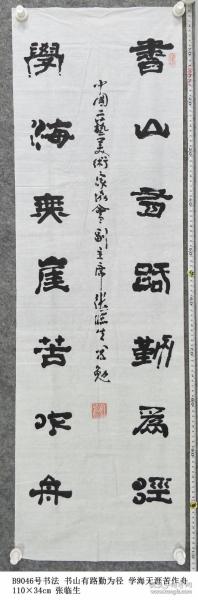 書山有路勤為徑
學海無崖苦作舟
中國工藝美術家協會副主席張臨生书勉
B9046号书法 书山有路勤为径 学海无涯苦作舟
110×34cm 张临生